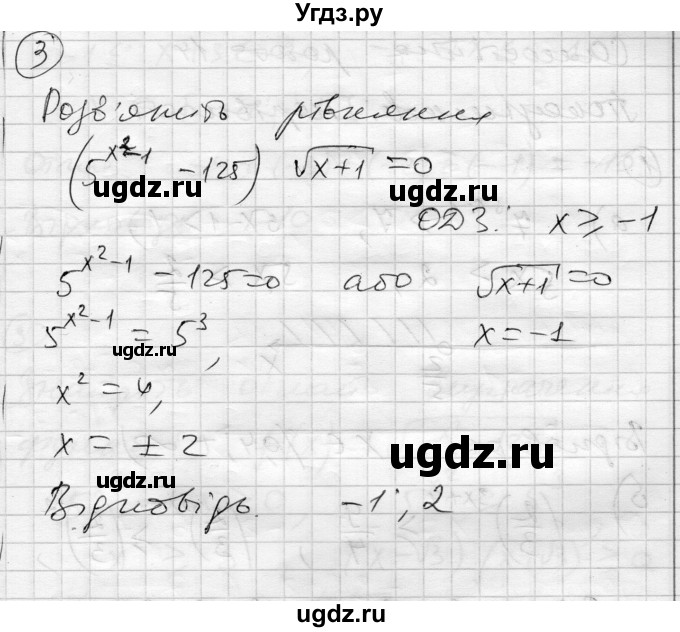 Угдз.ру
3
Розв'яжіть рівняння
(5^(x²-1) - 125) √(x+1) = 0
ugdz.ru
ОДЗ: x ≥ -1
5^(x²-1) - 125 = 0 або √(x+1) = 0
5^(x²-1) = 5³, x = -1
ugdz.ru
x² = 4,
x = ± 2
ugdz.ru
Відповідь. -1; 2
ugdz.ru